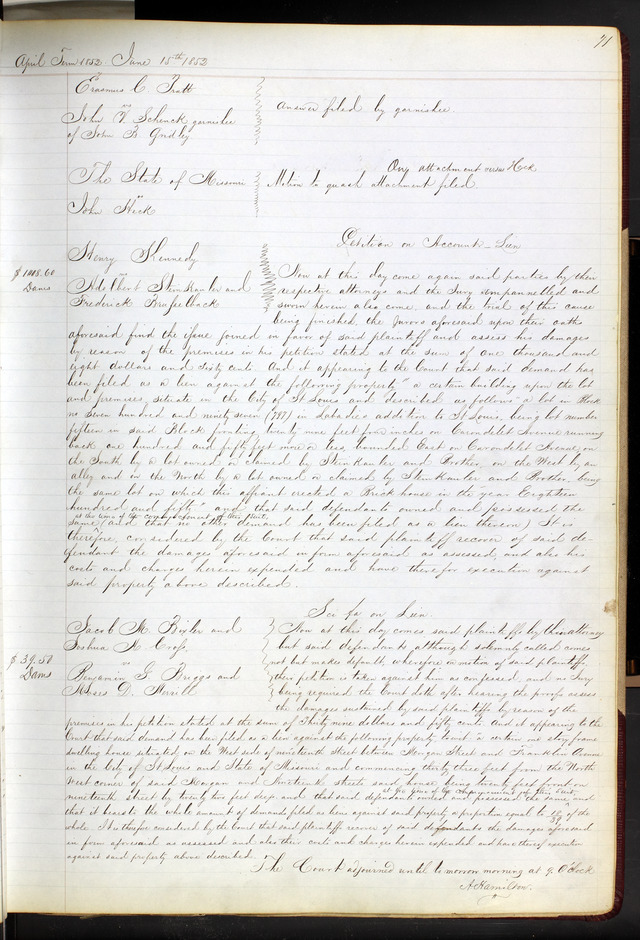 71
April Term 1852. June 15th 1852
Erasmus C. Pratt
vs
John V. Schenck garnishee
of John B. Gridley
Answer filed by garnishee
The State of Missouri
vs
John Heck
Ong attachment versus Heck
Motion to quash attachment filed
Petition on Account - Lien
$1008.60
Dams
Henry Kennedy
vs
Adelbert Steinkauler and
Frederick Brasselback
Now at this day come again said parties by their
respective attorneys and the Jury empannelled and
sworn herein also come, and the trial of this cause
being finished, the Jurors aforesaid upon their oaths
aforesaid find the issue joined in favor of said plaintiff and assess his damages
by reason of the premises in his petition stated at the sum of one thousand and
eight dollars and Sixty cents. And it appearing to the Court that said demand has
been filed as a lien against the following property "a certain building upon the lot
and premises, situate in the City of St Louis and described as follows" a lot in Block
no seven hundred and ninety seven (797) in Labade's addition to St Louis, being lot number
fifteen in said Block fronting twenty nine feet five inches on Carondelet Avenue running
back one hundred and fifty feet more or less, bounded East on Carondelet Avenue, on
the South by a lot owned or claimed by Steinkauler and Brother, on the West by an
alley and on the North by a lot owned or claimed by Steinkauler and Brother. being
the same lot on which this affiant erected a Brick house in the year Eighteen
hundred and fifty. and that said defendants owned and possessed the
at the time of the commencement of this suit
same (and that no other demand has been filed as a lien thereon) It is
therefore, considered by the Court that said plaintiff recover of said de-
fendant the damages aforesaid in form aforesaid as assessed, and also his
costs and charges herein expended and have therefor execution against
said property above described.
Sci fa on Lien.
$39.50
Dams
Jacob M. Bixler and
Joshua H. Cross,
vs
Benjamin G. Briggs and
Moses D. Merrill
Now at this day comes said plaintiffs by their attorney
but said defendants although solemnly called comes
not but makes default, wherefore on motion of said plaintiffs,
their petition is taken against them as confessed, and no Jury
being required the Court doth after hearing the proofs assess
the damages sustained by said plaintiffs by reason of the
premises in his petition stated at the sum of Thirty nine dollars and fifty cents. And it appearing to the
Court that said demand has been filed as a lien against the following property to wit "a certain one story frame
dwelling house situated on the West side of nineteenth Street between Morgan Street and Franklin Avenue
in the City of St Louis and State of Missouri and commencing thirty three feet from the North
West corner of said Morgan and Nineteenth streets said house being twenty feet front on
nineteenth street by twenty two feet deep and that said defendants owned and possessed the same, and
at the time of the commencement of this suit
that it bears to the whole amount of demands filed as liens against said property a proportion equal to of the
whole. It is therefore considered by the Court that said plaintiffs recover of said defendants the damages aforesaid
in form aforesaid as assessed and also their costs and charges herein expended and have thereof execution
against said property above described.
The Court adjourned until tomorrow morning at 9. O'Clock
A Hamilton.